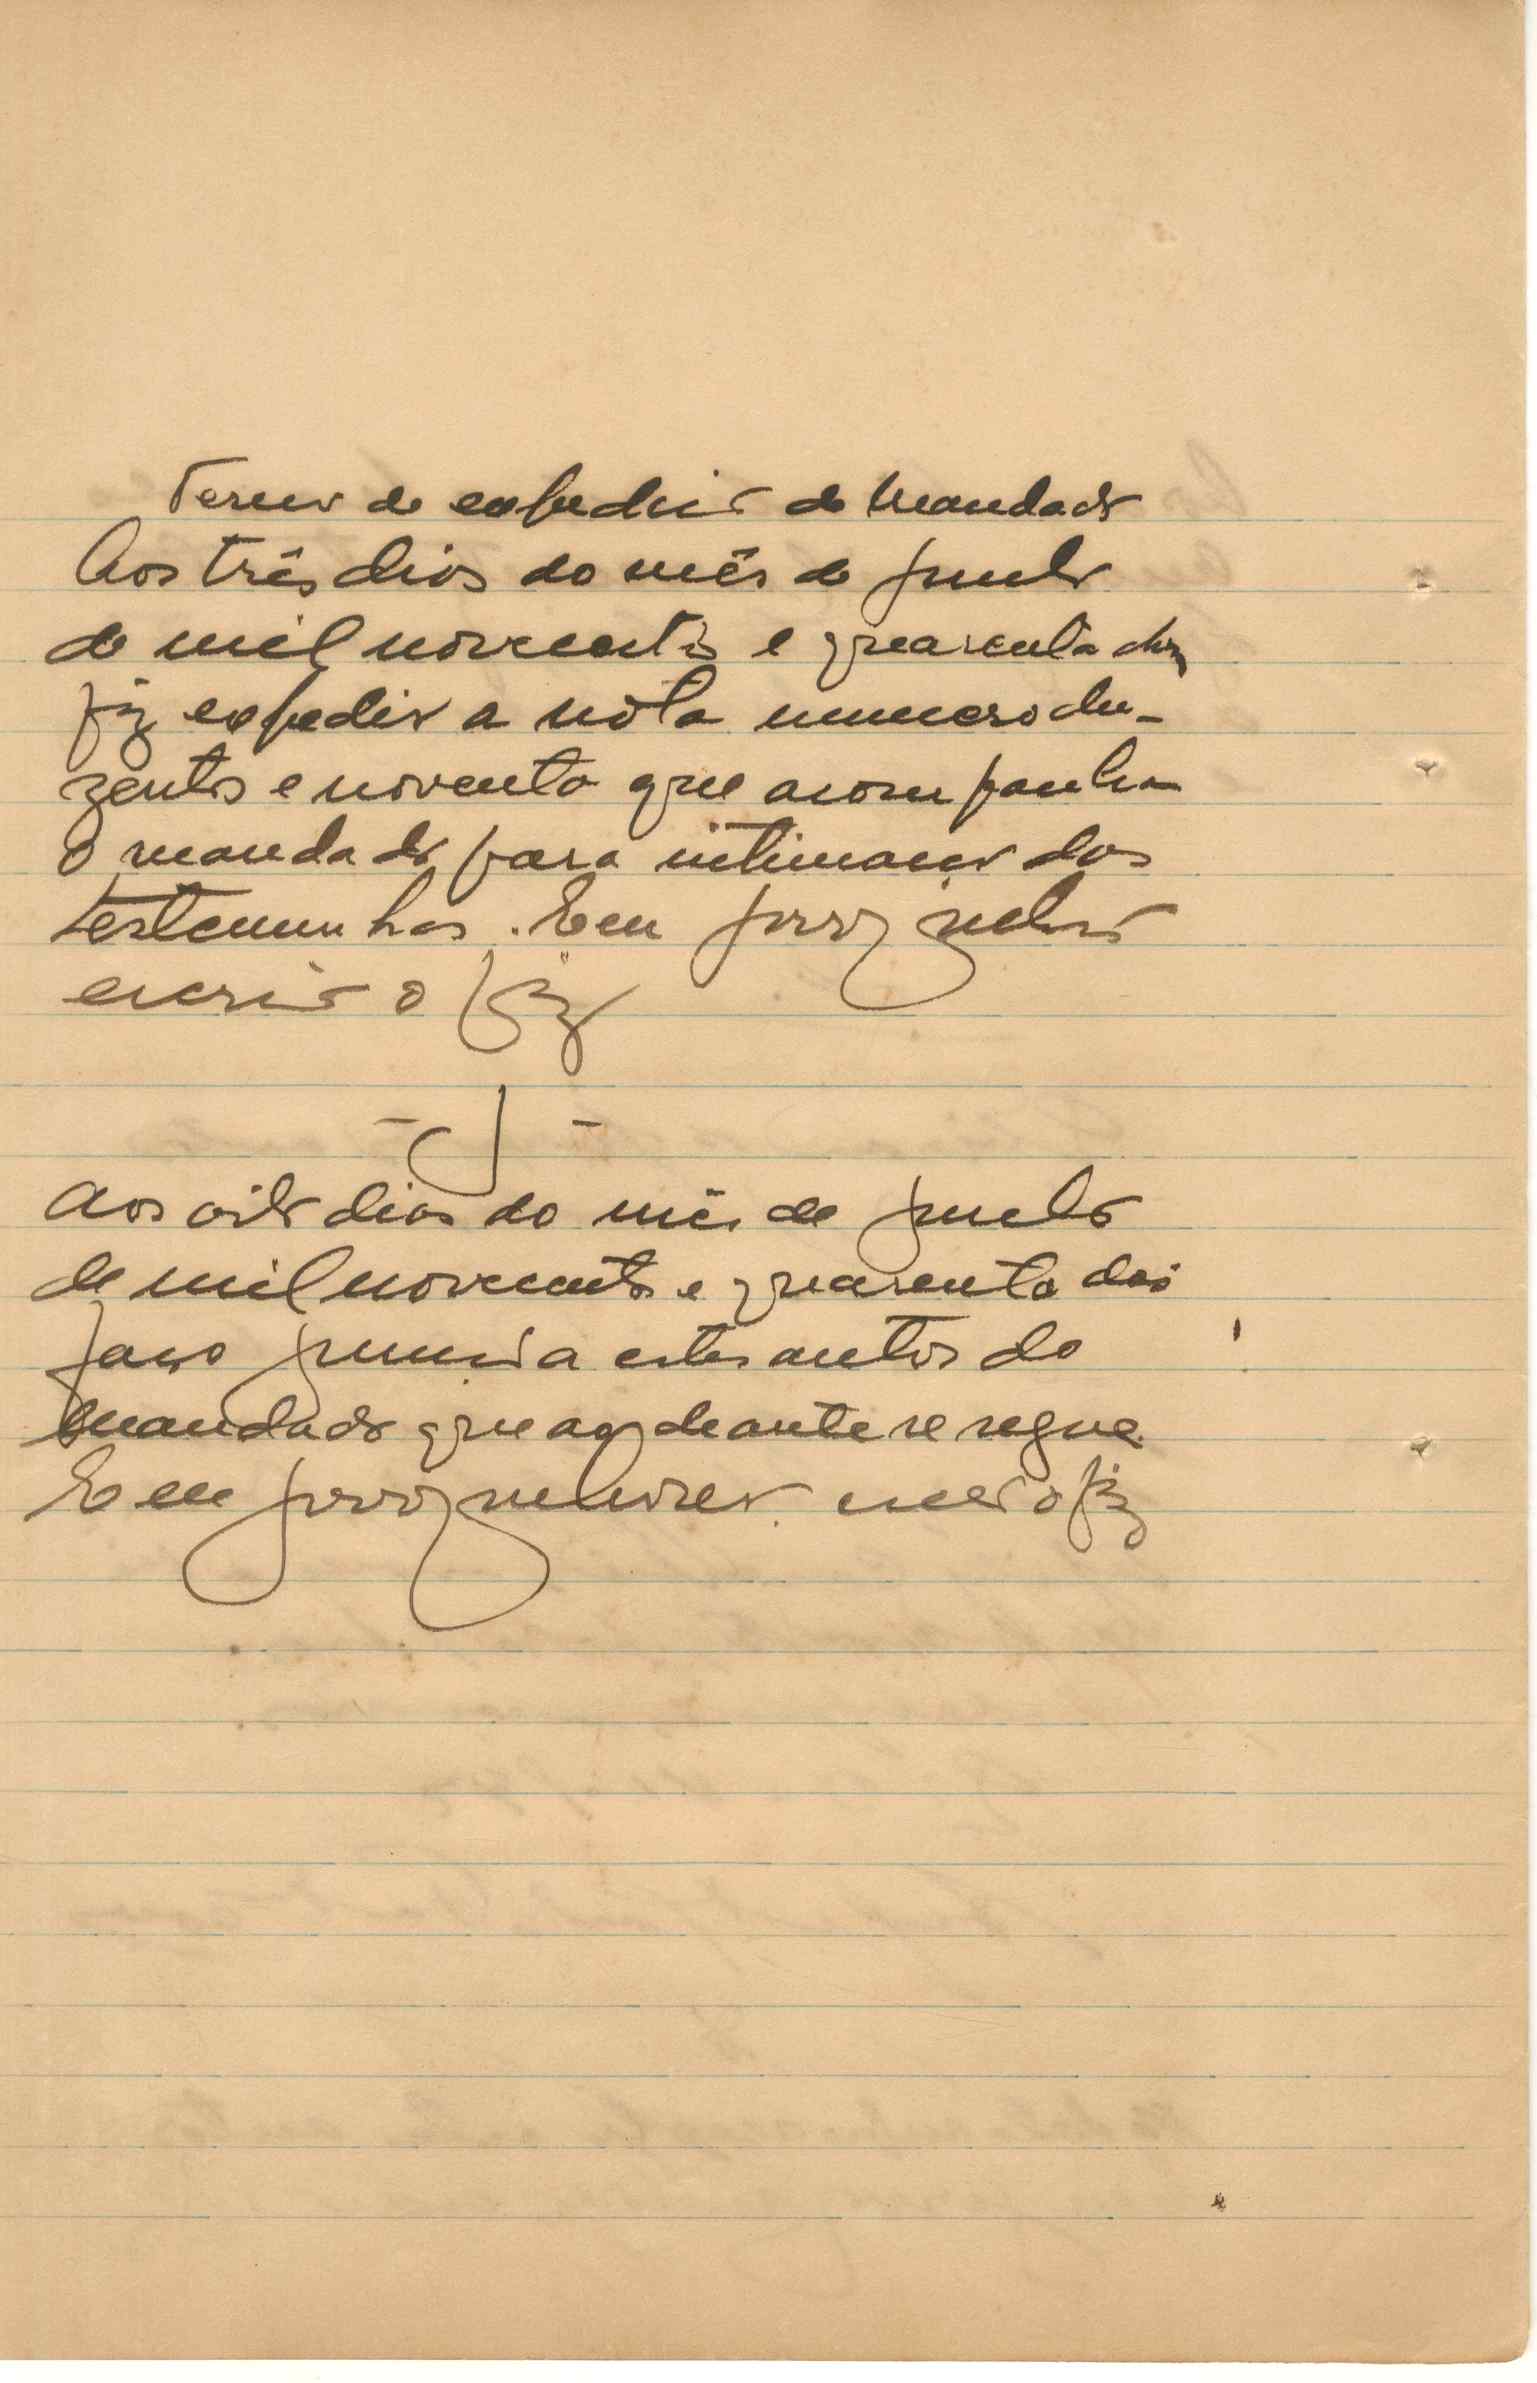 Termo de expedição de Mandado
Aos três dias do mês de junho
de mil novecentos e quarenta dois
fiz expedir a nóta numero du-
zentos e noventa que acompanha
o mandado para intimação das
testemunhas. E eu
escrivão o fiz
- J -
Aos oito dias do mês de junho
de mil novecentos e quarenta dois
faço juncção a estes autos do
mandado que ao deante se segue.
E eu escrivão o fiz